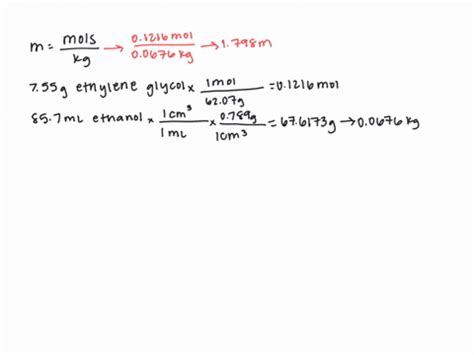 m = mols/kg → 0.1216 mol/0.0676 kg → 1.798m
7.55g ethylene glycol × 1mol/62.07g = 0.1216 mol
85.7mL ethanol × 1cm³/1mL × 0.789g/1cm³ = 67.6173g → 0.0676 kg